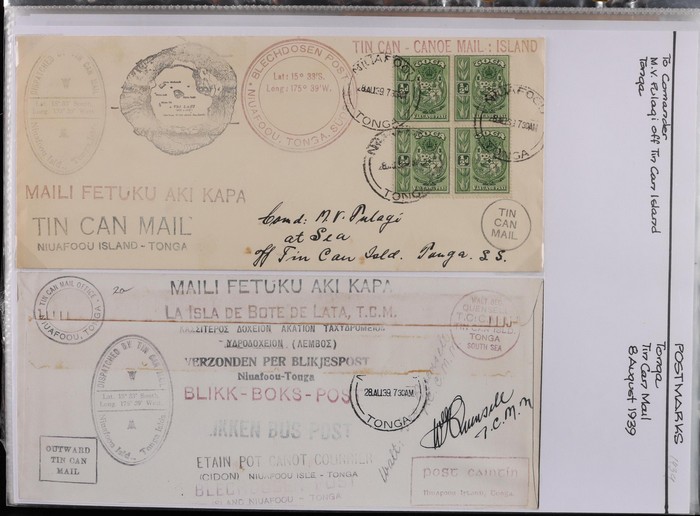 TIN CAN - CANOE MAIL : ISLAND
BLECHDOSEN POST
Lat: 15° 33'S.
Long: 175° 39'W.
NIUAFOOU, TONGA,
DISPATCHED BY TIN CAN
Niuafoou Isld. - Tonga
TOGA
TOGA
TOGA
TOGA
28AU39 730AM
TONGA
TONGA
TONGA
MAILI FETUKU AKI KAPA
TIN CAN MAIL
NIUAFOOU ISLAND - TONGA
TIN
CAN
MAIL
Comd: M.V. Pulagi
at Sea
Off Tin Can Isld. Tonga. S.S.
TIN CAN MAIL OFFICE
NIUAFOOU, TONGA
MAILI FETUKU AKI KAPA
LA ISLA DE BOTE DE LATA, T.C.M.
ΚΑΣΣΙΤΕΡΟΣ ΔΟΧΕΙΟΝ ΑΚΑΤΙΟΝ ΤΑΧΥΔΡΟΜΕΙΟΝ
ΥΔΡΟΔΟΧΕΙΟΝ (ΛΕΜΒΟΣ)
VERZONDEN PER BLIKJESPOST
Niuafoou-Tonga
BLIKK-BOKS-POS
BLIKKEN BUS POST
ETAIN POT CANOT COURRIER
(CIDON) NIUAFOOU ISLE - TONGA
NIUAFOOU ISLAND - TONGA
DISPATCHED BY TIN CAN
Lat: 15° 33' South.
Long: 175° 39' West.
Niuafoou Isld. - Tonga Isld.
OUTWARD
TIN CAN
MAIL
28AU39 730AM
TONGA
TIN CAN ISLD.
TONGA
SOUTH SEA
T.C.M.M
POST CAINTIN
Niuafoou Island, Tonga.
To Comander
M.V. Pulagi off Tin Can Island
Tonga
POSTMARKS
Tonga
Tin Can Mail
8 August 1939